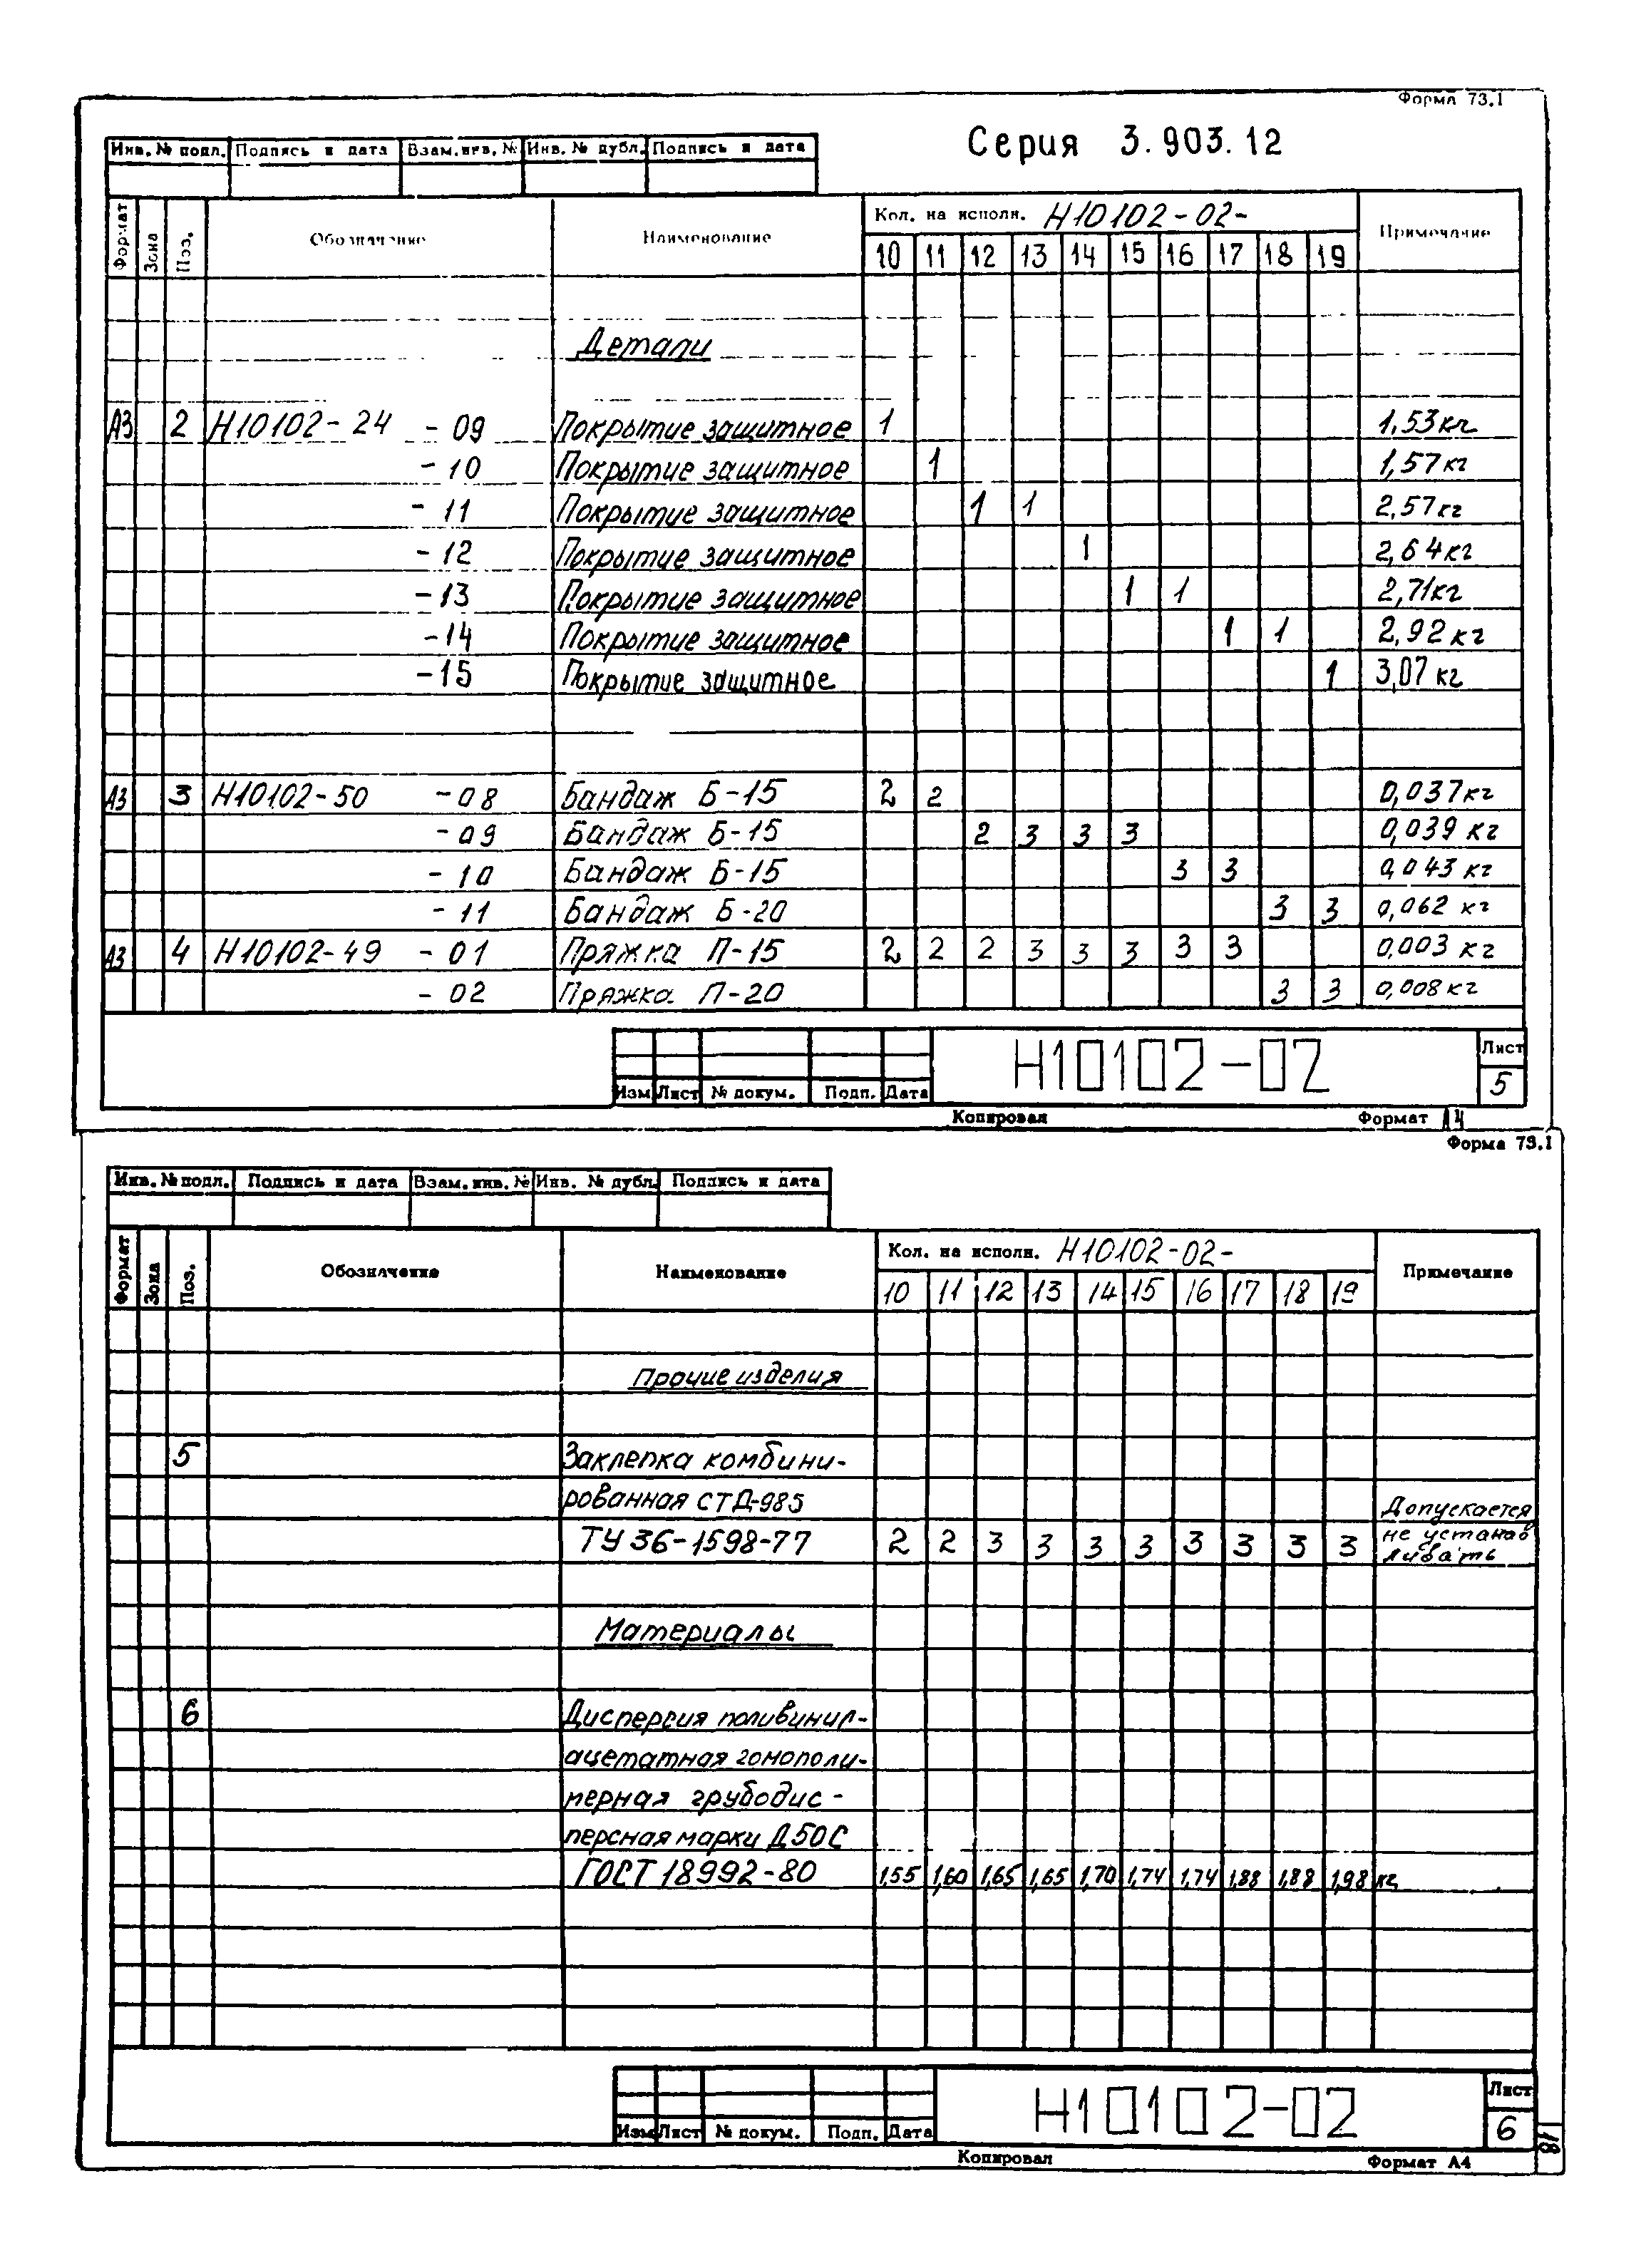 Форма 73.1
Серия 3.903.12
Инв. № подл. Подпись и дата Взам. инв. № Инв. № дубл. Подпись и дата
Формат Зона Поз. Обозначение Наименование Кол. на исполн. Н10102-02- Примечание
10 11 12 13 14 15 16 17 18 19
Детали
А3 2 Н10102-24 -09 Покрытие защитное 1 1,53 кг
-10 Покрытие защитное 1 1,57 кг
-11 Покрытие защитное 1 1 2,57 кг
-12 Покрытие защитное 1 2,64 кг
-13 Покрытие защитное 1 1 2,71 кг
-14 Покрытие защитное 1 1 2,92 кг
-15 Покрытие защитное 1 3,07 кг
А3 3 Н10102-50 -08 Бандаж Б-15 2 2 0,037 кг
-09 Бандаж Б-15 2 3 3 3 0,039 кг
-10 Бандаж Б-15 3 3 0,043 кг
-11 Бандаж Б-20 3 3 0,062 кг
А3 4 Н10102-49 -01 Пряжка П-15 2 2 2 3 3 3 3 3 0,003 кг
-02 Пряжка П-20 3 3 0,008 кг
Изм Лист № докум. Подп. Дата Н10102-02 Лист 5
Копировал Формат А4
Форма 73.1
Инв. № подл. Подпись и дата Взам. инв. № Инв. № дубл. Подпись и дата
Формат Зона Поз. Обозначение Наименование Кол. на исполн. Н10102-02- Примечание
10 11 12 13 14 15 16 17 18 19
Прочие изделия
5 Заклепка комбини-
рованная СТД-985 Допускается
ТУ 36-1598-77 2 2 3 3 3 3 3 3 3 3 не устанав
ливать
Материалы
6 Дисперсия поливинил-
ацетатная гомополи-
мерная грубодис-
персная марки Д50С
ГОСТ 18992-80 1,55 1,60 1,65 1,65 1,70 1,74 1,74 1,88 1,88 1,98 кг
Изм Лист № докум. Подп. Дата Н10102-02 Лист 6
Копировал Формат А4
118